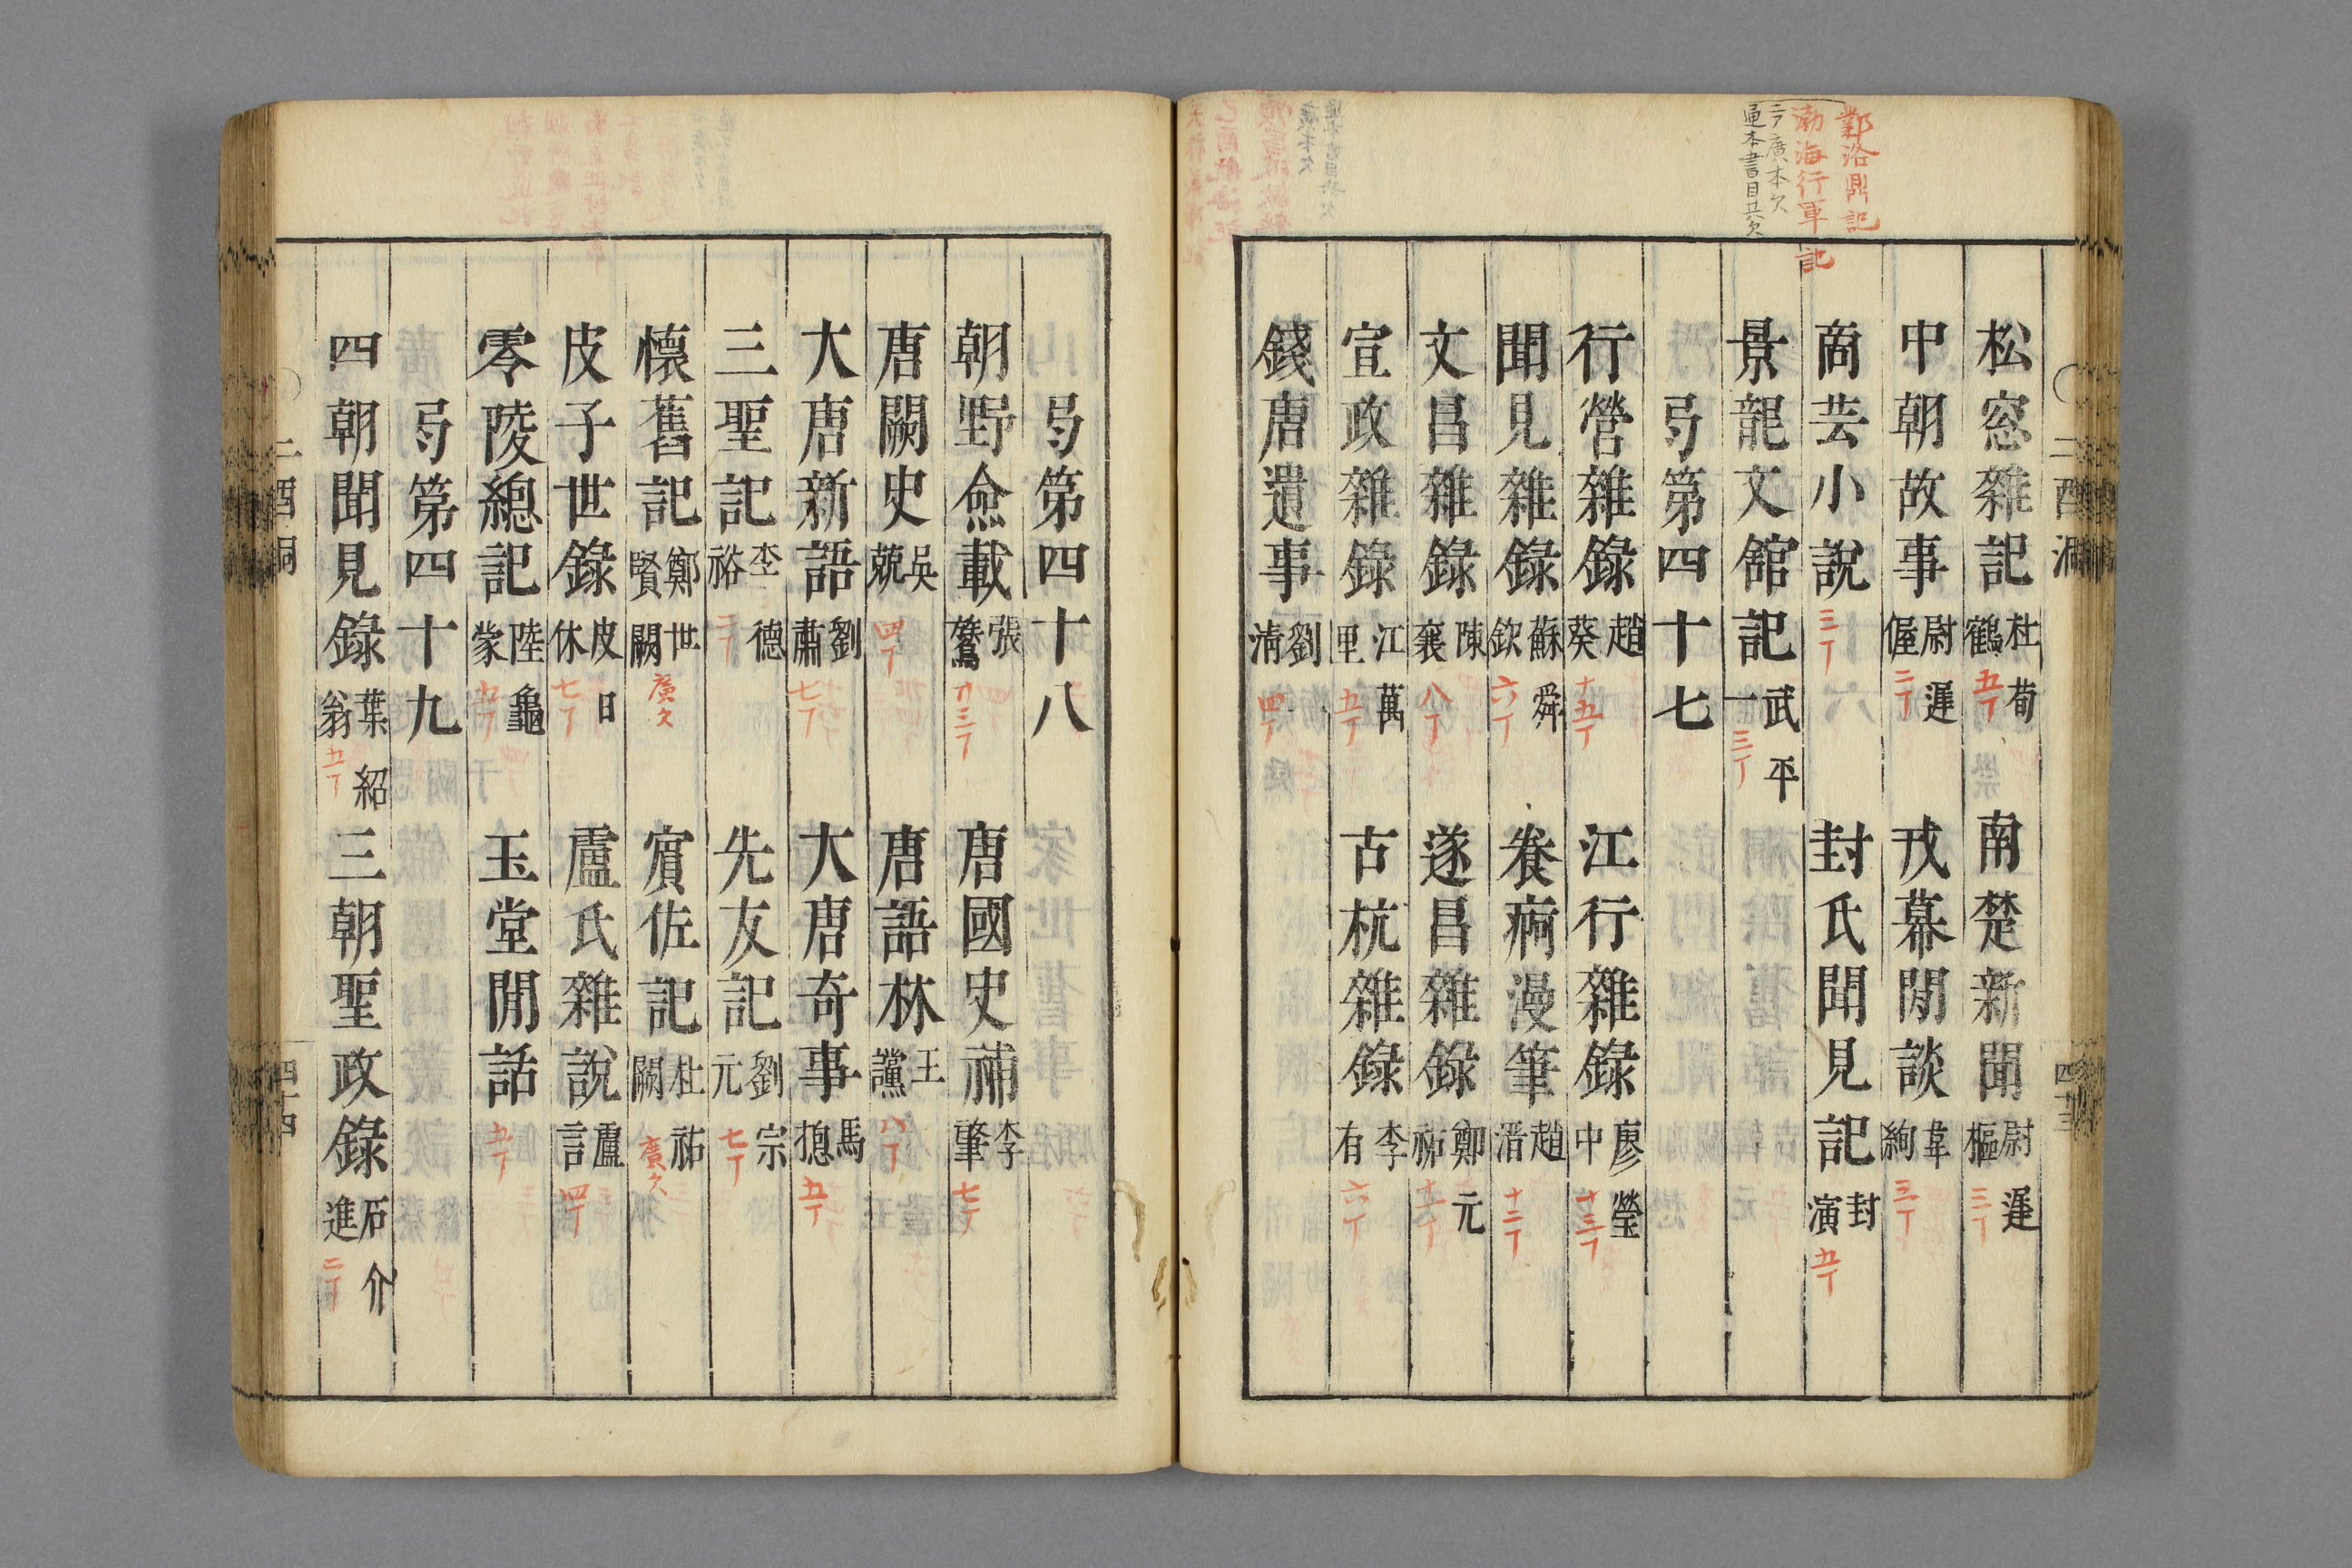 鄴洛鼎記
渤海行軍記
二ア廣本欠
通本書目共欠
二酉洞
四十三
松窓雜記 杜荀鶴 五丁 南楚新聞 尉遲樞 三丁
中朝故事 尉遲偓 二丁 戎幕閒談 韋絢 三丁
商芸小說 三丁 封氏聞見記 封演 五丁
景龍文館記 武平一 三丁
弓第四十七
行營雜錄 趙葵 十五丁 江行雜錄 廖瑩中 十三丁
聞見雜錄 蘇舜欽 六丁 養痾漫筆 趙溍 十二丁
文昌雜錄 陳襄 八丁 遂昌雜錄 鄭元祐 十一丁
宣政雜錄 江萬里 五丁 古杭雜錄 李有 六丁
錢唐遺事 劉淸 四丁
弓第四十八
朝野僉載 張鷟 廿三丁 唐國史補 李肇 七丁
唐闕史 吳兢 四丁 唐語林 王讜 八丁
大唐新語 劉肅 七丁 大唐奇事 馬摠 五丁
三聖記 李德裕 二丁 先友記 劉宗元 七丁
懷舊記 鄭世賢闕 廣欠 賓佐記 杜祐闕 廣欠
皮子世錄 皮日休 七丁 盧氏雜說 盧言 四丁
零陵總記 陸龜蒙 九丁 玉堂閒話 五丁
弓第四十九
四朝聞見錄 葉紹翁 五丁 三朝聖政錄 石介進 二丁
二酉洞
四十四